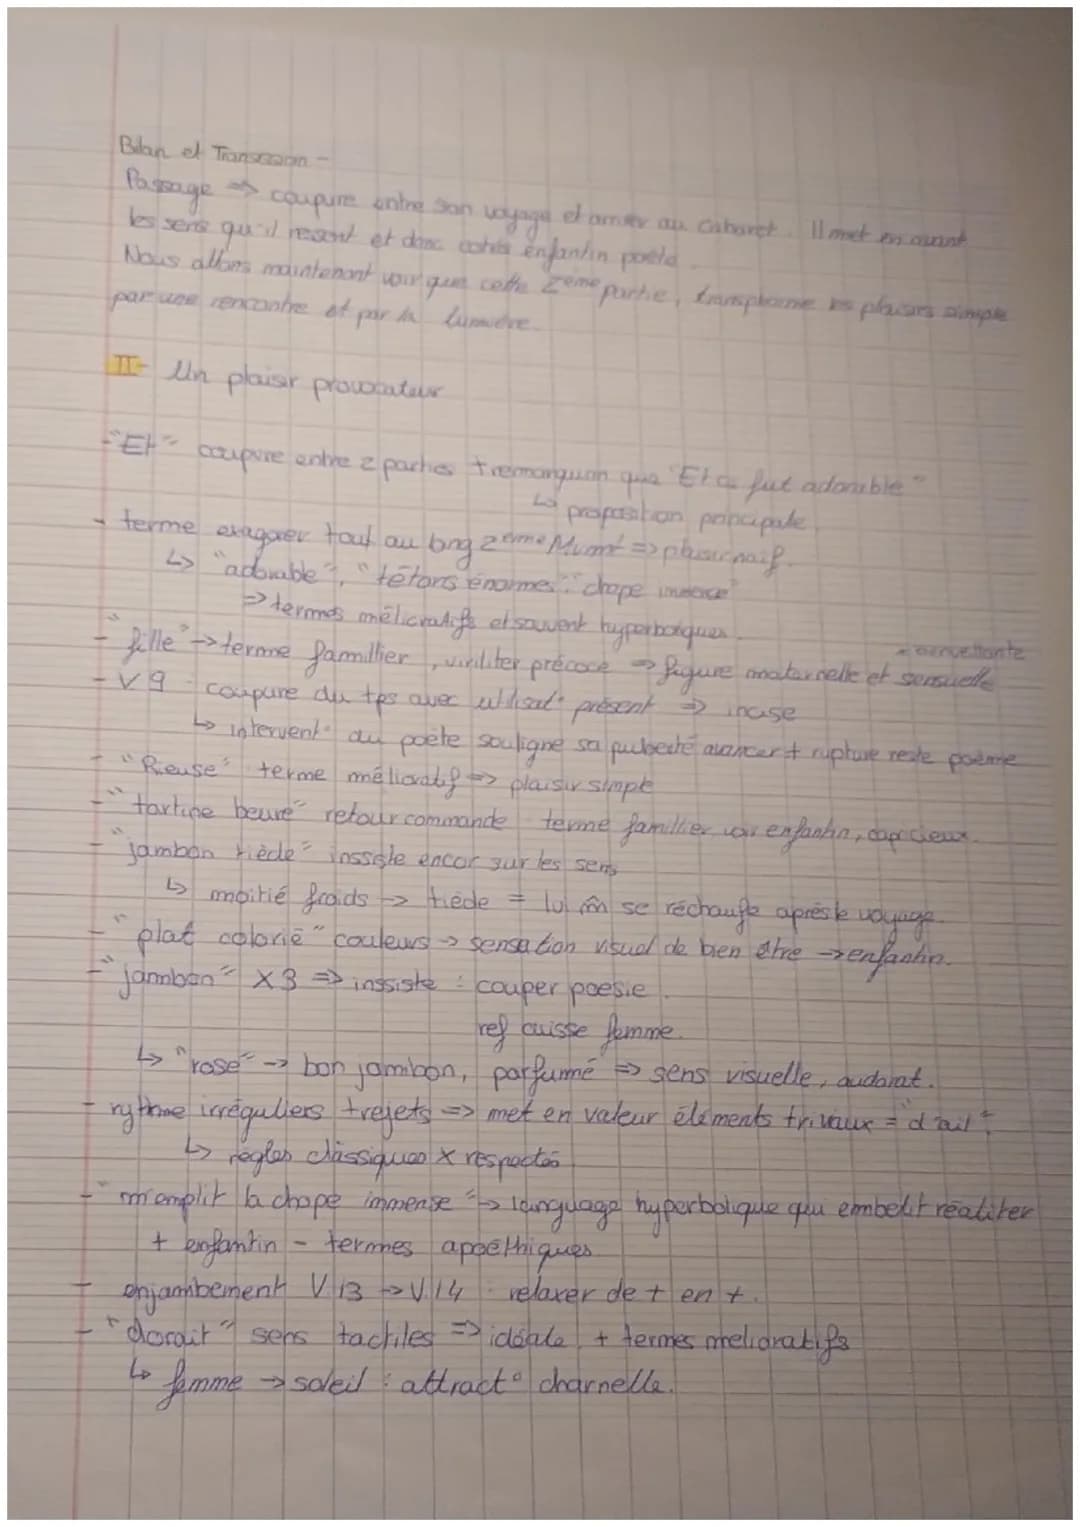 Bilan et Transition -
Passage => coupure entre son voyage et arriver au cabaret. Il met en avant
les sens qu'il ressent et donc cotés enfantin poète.
Nous allons maintenant voir que cette 2ème partie, transphorme les plaisirs simple
par une rencontre et par la lumière.
II- Un plaisir provocateur
-"Et" coupure entre 2 parties + remarquon que "Et ce fut adorable"
↳ proposition principale.
- terme exagorer tout au long 2ème Mvmt => plaisir naif.
↳ "adorable", "tétons énormes", "chope immense"
=> termes mélioratifs et souvent hyperboliques.
- "fille" -> terme famillier, viriliter précoce => figure maternelle et sensuelle
- V 9 : coupure du tps avec utilisat° présent => incise
↳ intervent° du poète souligne sa puberté avancer + rupture reste poème
- "Rieuse" terme mélioratif => plaisir simple
- "tartine beuré" retour commande terme famillier voir enfantin, capricieux.
- "jambon tiède" inssiste encor sur les sens
↳ moitié froids -> tiède = lui m̂ se réchauffe après le voyage.
- "plat colorié" couleurs -> sensation visuel de bien être -> enfantin.
- "jambon" X3 => inssiste : couper poesie.
ref cuisse femme.
↳ "rose" -> bon jambon, parfumé => sens visuelle, audorat.
- rythme irréguliers + rejets => met en valeur éléments trivaux = "d'ail".
↳ règles classiques X respectés
- "m'emplit la chope immense" -> language hyperbolique qui embelit réaliter
+ enfantin - termes appéthiques
- enjambement V.13 -> V.14 : relaxer de + en +.
- "dorait" sens tactiles => idéale + termes melioratifs
↳ femme -> soleil : attract° charnelle.